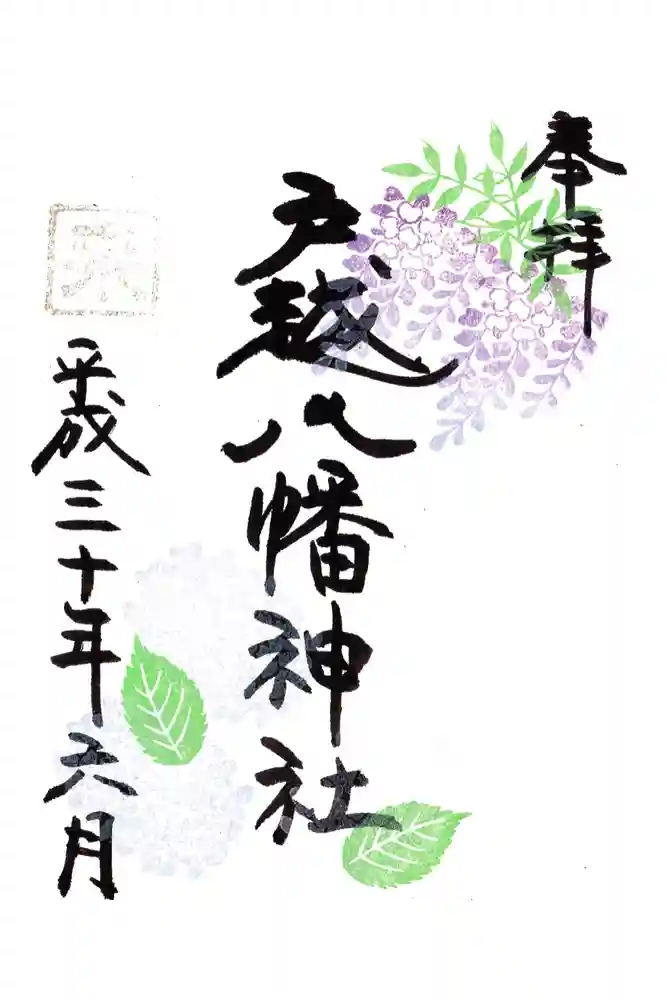 奉拝
戸越八幡神社
平成三十年六月